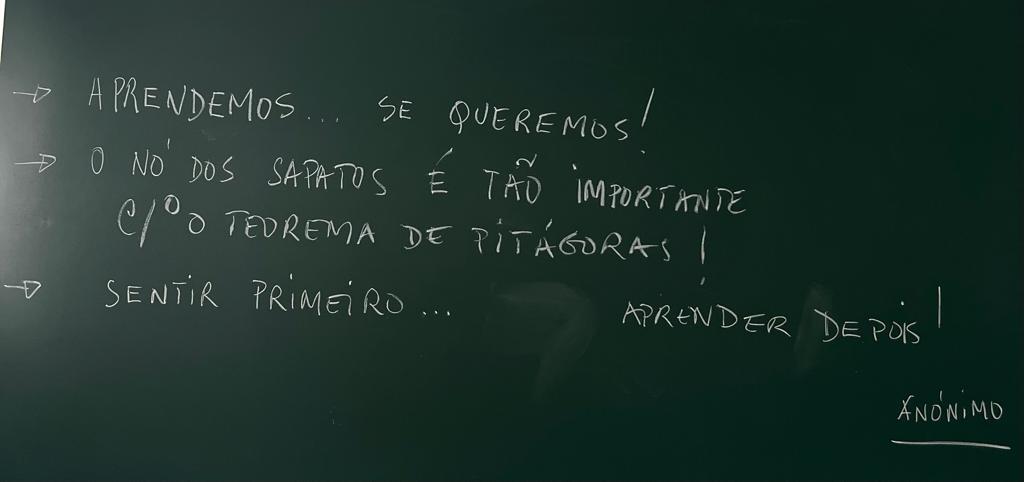 → APRENDEMOS... SE QUEREMOS!
→ O NÓ DOS SAPATOS É TÃO IMPORTANTE
C/º O TEOREMA DE PITÁGORAS!
→ SENTIR PRIMEIRO... APRENDER DEPOIS!
ANÓNIMO